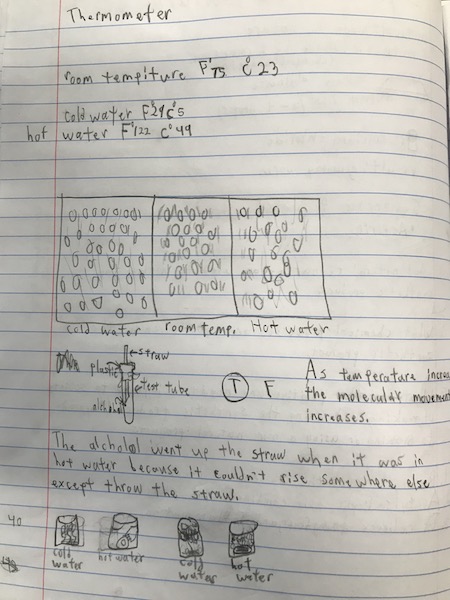 Thermometer
room tempiture F°75 C°23
cold water F°29 C°5
hot water F°122 C°49
cold water room temp. Hot water
straw
plastic
test tube
alchohol
T F
As temperature increa
the molecular movemen
increases.
The alcholol went up the straw when it was in
hot water because it couldn't rise some where else
except throw the straw.
40
cold water
hot water
cold water
hot water